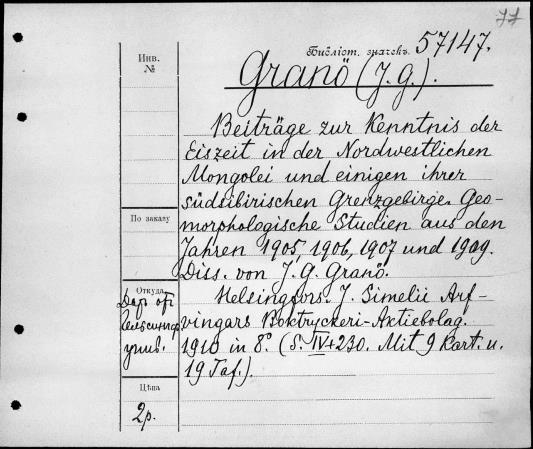 77
Библіот. значекъ. 57147.
Инв.
№
Granö (J. G.).
Beiträge zur Kenntnis der
Eiszeit in der Nordwestlichen
Mongolei und einigen ihrer
südsibirischen Grenzgebirge. Geo-
morphologische Studien aus den
По заказу
Jahren 1905, 1906, 1907 und 1909.
Diss. von J. G. Granö.
Откуда
Helsingfors. J. Simelii Arf-
Даръ отъ
vingars Boktryckeri-Aktiebolag.
унив.
1910 in 8°. (S. IV+230. Mit 9 Kart. u.
19 Taf.).
Цѣна
2р.